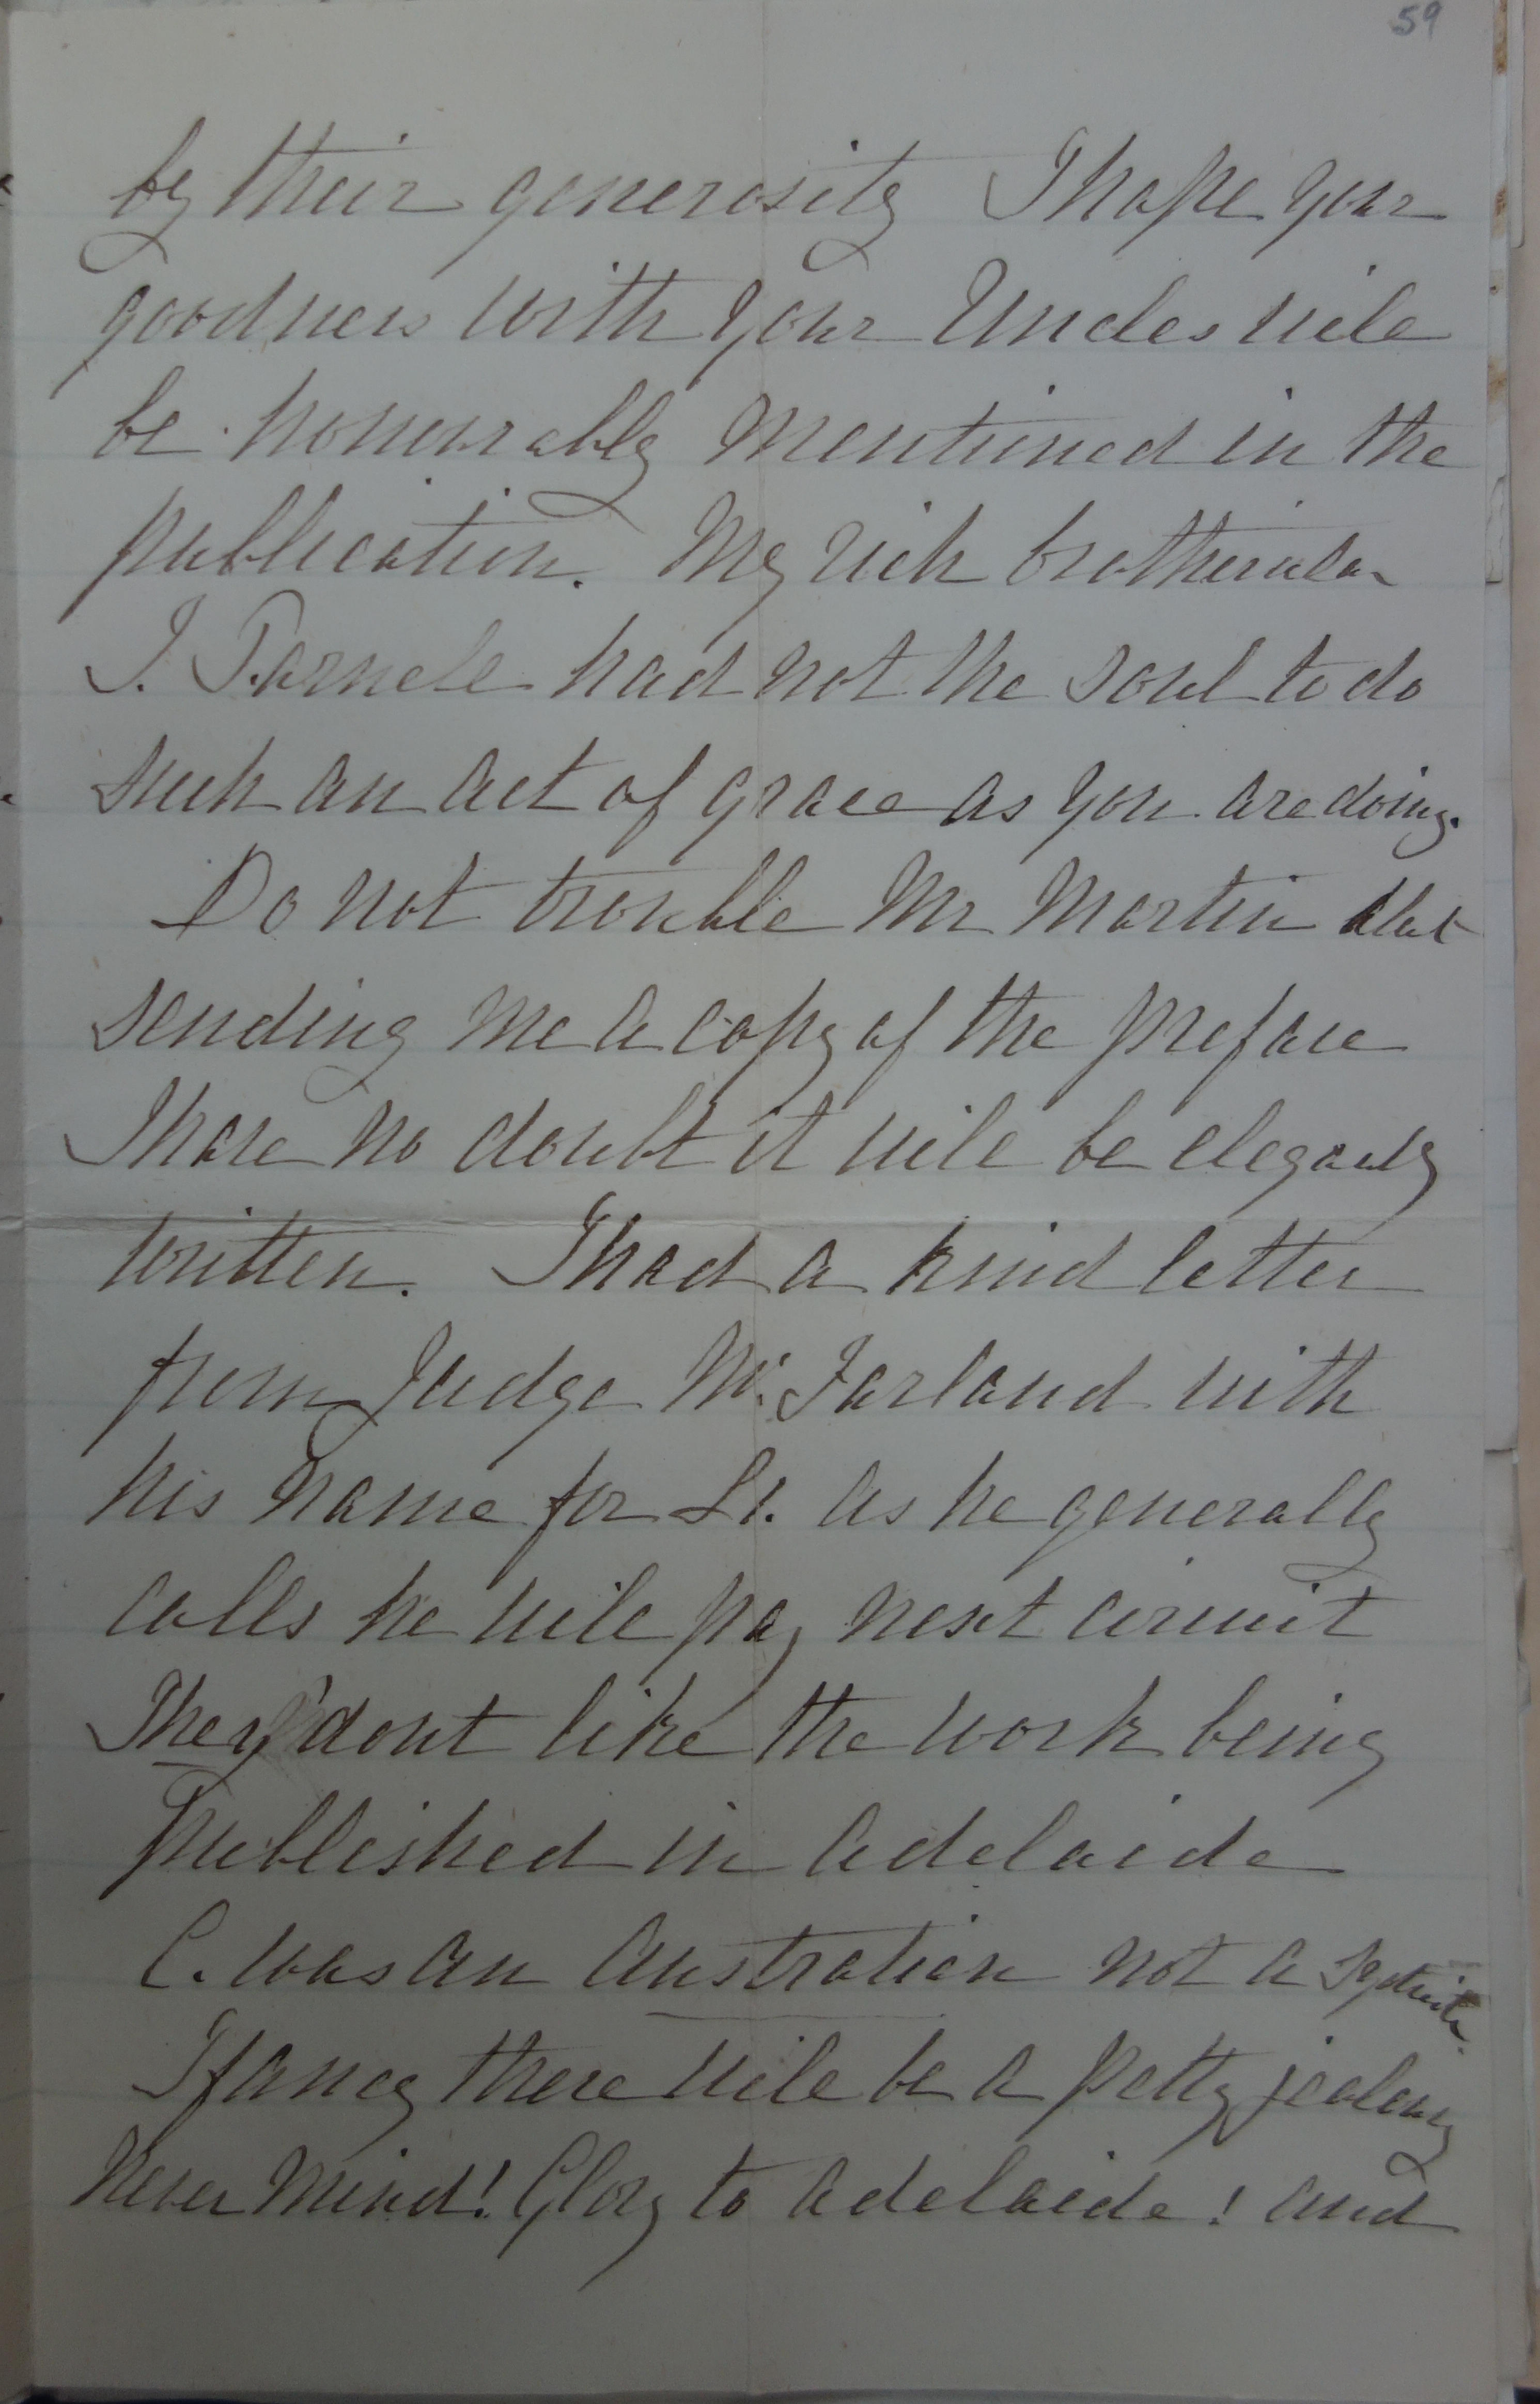 59
by their generosity I hope your
goodness with your Uncles will
be honourably mentioned in the
publication. My rich brotherinlaw
J. Parnell had not the soul to do
such an act of grace as you are doing.
Do not trouble Mr Martin abut
sending me a copy of the preface
I have no doubt it will be elegantly
written. I had a kind letter
from Judge McFarland with
his name for £1. as he generally
calls he will pay next circuit
They dont like the work being
published in Adelaide
C. was an Australian not a
I fancy there will be a petty jealousy
Never mind! Glory to Adelaide! and